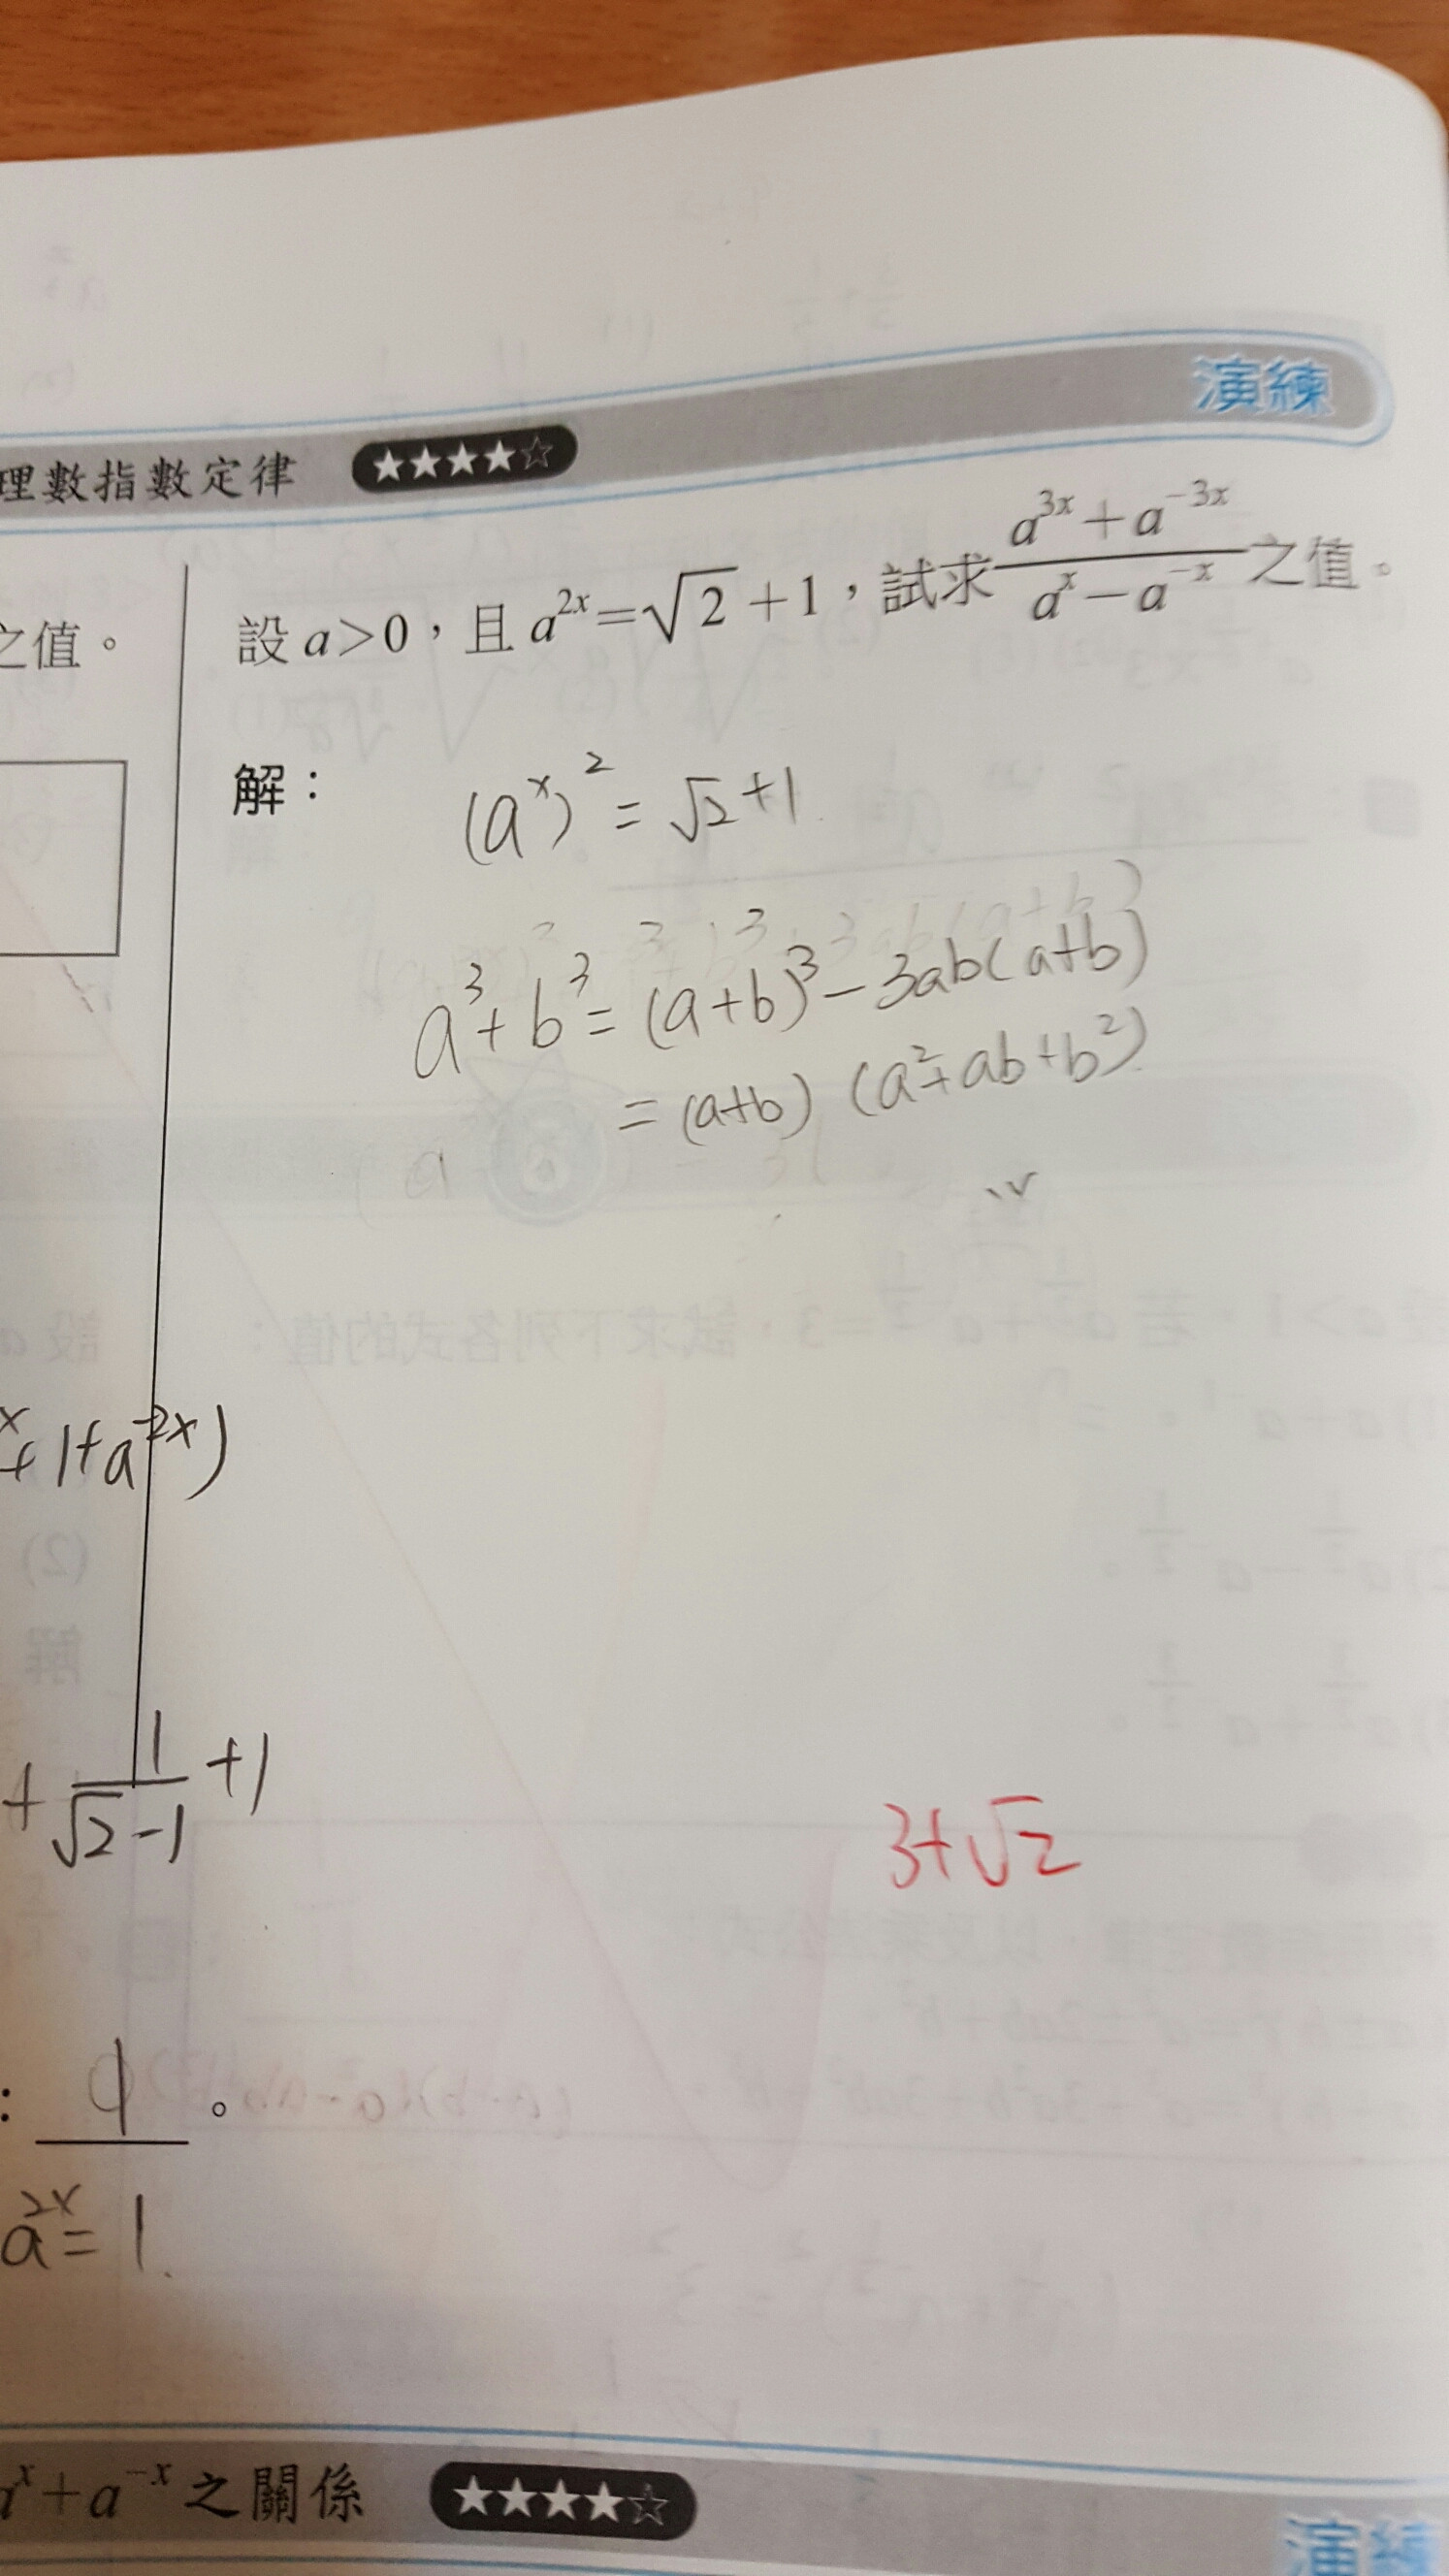 演練
理數指數定律 ★★★★☆
之值。
設 a>0，且 a^{2x}=√2+1，試求 \frac{a^{3x}+a^{-3x}}{a^x-a^{-x}} 之值。
解：
(a^x)^2 = √2+1
a^3+b^3 = (a+b)^3-3ab(a+b)
= (a+b) (a^2+ab+b^2)
x+1+a^{-2x})
+ \frac{1}{√2-1} +1
3+√2
： 。
a^{2x}=1.
a^x+a^{-x} 之關係 ★★★★☆
演練